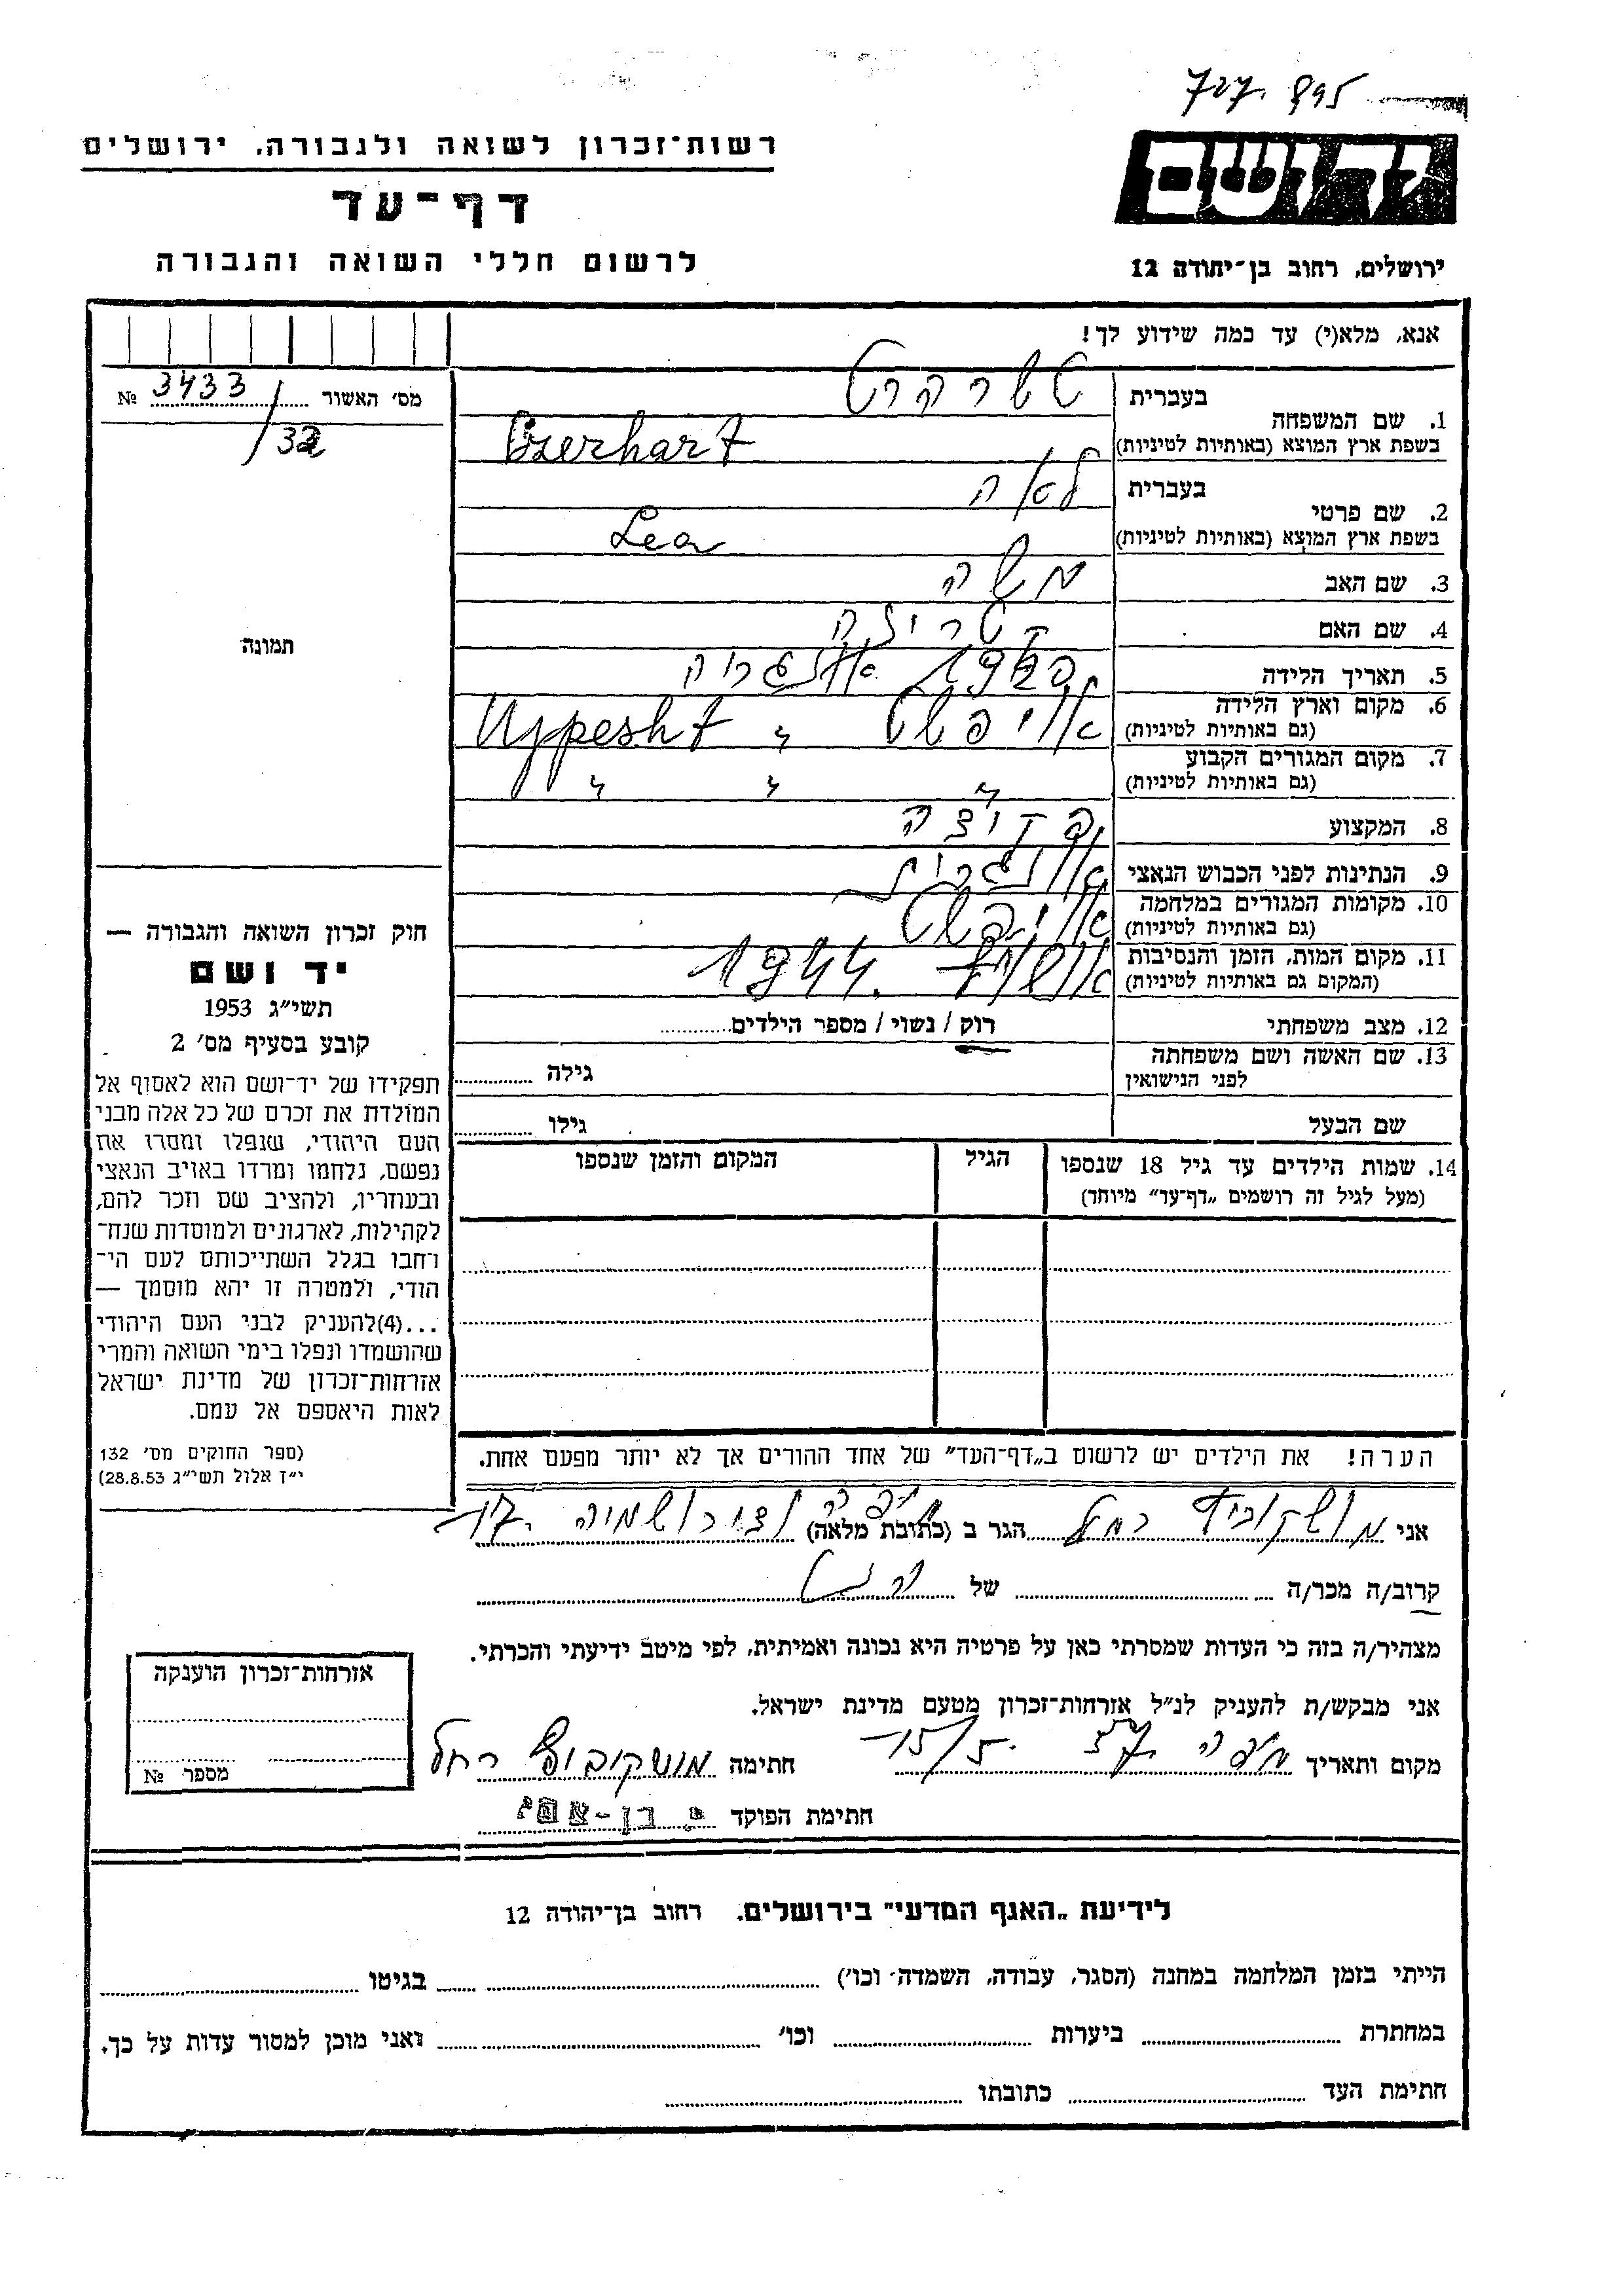 727. 895
רשות־זכרון לשואה ולגבורה, ירושלים
יד ושם
דף־עד
לרשום חללי השואה והגבורה
ירושלים, רחוב בן־יהודה 12
אנא, מלא(י) עד כמה שידוע לך!
מס׳ האשור № 3433/32
תמונה
1. שם המשפחה
בעברית
בשפת ארץ המוצא (באותיות לטיניות)
2. שם פרטי
בעברית לאה
בשפת ארץ המוצא (באותיות לטיניות) Lea
3. שם האב משה
4. שם האם
5. תאריך הלידה
6. מקום וארץ הלידה אויפשט „ Ujpesht
(גם באותיות לטיניות)
7. מקום המגורים הקבוע „ „ „
(גם באותיות לטיניות)
8. המקצוע פקידה
9. הנתינות לפני הכבוש הנאצי אונגרית
10. מקומות המגורים במלחמה אויפשט
(גם באותיות לטיניות)
11. מקום המות, הזמן והנסיבות אושויץ 1944.
(המקום גם באותיות לטיניות)
12. מצב משפחתי רוק / נשוי / מספר הילדים
13. שם האשה ושם משפחתה גילה
לפני הנישואין
שם הבעל גילו
14. שמות הילדים עד גיל 18 שנספו הגיל המקום והזמן שנספו
(מעל לגיל זה רושמים „דף־עד״ מיוחד)
חוק זכרון השואה והגבורה —
יד ושם
תשי״ג 1953
קובע בסעיף מס׳ 2
תפקידו של יד־ושם הוא לאסוף אל
המולדת את זכרם של כל אלה מבני
העם היהודי, שנפלו ומסרו את
נפשם, נלחמו ומרדו באויב הנאצי
ובעוזריו, ולהציב שם וזכר להם,
לקהילות, לארגונים ולמוסדות שנח־
רחבו בגלל השתייכותם לעם הי־
הודי, ולמטרה זו יהא מוסמך —
...(4)להעניק לבני העם היהודי
שהושמדו ונפלו בימי השואה והמרי
אזרחות־זכרון של מדינת ישראל
לאות היאספם אל עמם.
(ספר החוקים מס׳ 132
י״ז אלול תשי״ג 28.8.53)
הערה! את הילדים יש לרשום ב„דף־העד״ של אחד ההורים אך לא יותר מפעם אחת.
אני מושקוביץ רחל הגר ב (כתובת מלאה) חיפה
קרוב/ה מכר/ה של
מצהיר/ה בזה כי העדות שמסרתי כאן על פרטיה היא נכונה ואמיתית, לפי מיטב ידיעתי והכרתי.
אני מבקש/ת להעניק לנ״ל אזרחות־זכרון מטעם מדינת ישראל.
מקום ותאריך חיפה 15/5. 57 חתימה מושקוביץ רחל
חתימת הפוקד
אזרחות־זכרון הוענקה
מספר №
לידיעת „האגף המדעי״ בירושלים. רחוב בן־יהודה 12
הייתי בזמן המלחמה במחנה (הסגר, עבודה, השמדה וכו׳) בגיטו
במחתרת ביערות וכו׳ ואני מוכן למסור עדות על כך.
חתימת העד כתובתו